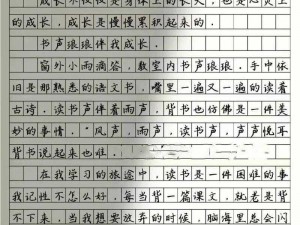 成长不仅仅是身体上的长大，也是心灵上
的成长，成长是慢慢累积起来的。
书声琅琅伴我成长。
窗外小雨滴答，教室内书声琅琅，手中依
旧是那熟悉的语文书，嘴里一遍又一遍的读着
古诗，读书声伴着雨声，背书也仿佛是一件美
妙的事情，“风声，雨声，读书声，声声悦耳
背书说起来也难。
在我学习的旅途中，读书是一件困难的事
我记性不怎么好，每当背一篇课文，就老是背
不下来，当我想要放弃的时候，脑海里总会闪